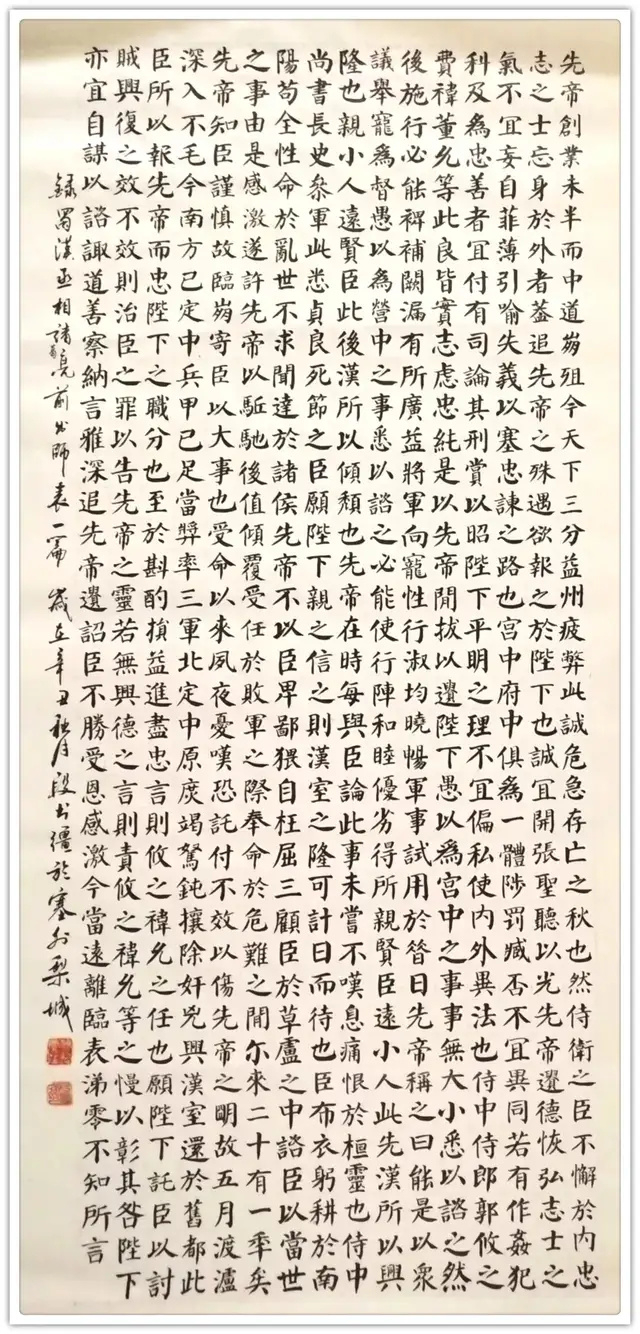 先帝創業未半而中道崩殂今天下三分益州疲弊此誠危急存亡之秋也然侍衛之臣不懈於內忠
志之士忘身於外者蓋追先帝之殊遇欲報之於陛下也誠宜開張聖聽以光先帝遺德恢弘志士之
氣不宜妄自菲薄引喻失義以塞忠諫之路也宮中府中俱為一體陟罰臧否不宜異同若有作姦犯
科及為忠善者宜付有司論其刑賞以昭陛下平明之理不宜偏私使內外異法也侍中侍郎郭攸之
費禕董允等此良皆實志慮忠純是以先帝閒拔以遺陛下愚以為宮中之事事無大小悉以諮之然
後施行必能裨補闕漏有所廣益將軍向寵性行淑均曉暢軍事試用於昝日先帝稱之曰能是以眾
議舉寵為督愚以為營中之事悉以諮之必能使行陣和睦優劣得所親賢臣遠小人此先漢所以興
隆也親小人遠賢臣此後漢所以傾頹也先帝在時每與臣論此事未嘗不嘆息痛恨於桓靈也侍中
尚書長史參軍此悉貞良死節之臣願陛下親之信之則漢室之隆可計日而待也臣布衣躬耕於南
陽苟全性命於亂世不求聞達於諸侯先帝不以臣卑鄙猥自枉屈三顧臣於草廬之中諮臣以當世
之事由是感激遂許先帝以駈馳後值傾覆受任於敗軍之際奉命於危難之閒尓來二十有一年矣
先帝知臣謹慎故臨崩寄臣以大事也受命以來夙夜憂嘆恐託付不效以傷先帝之明故五月渡瀘
深入不毛今南方已定中兵甲已足當獎率三軍北定中原庶竭駑鈍攘除奸兇興漢室還於舊都此
臣所以報先帝而忠陛下之職分也至於斟酌損益進盡忠言則攸之禕允之任也願陛下託臣以討
賊興復之效不效則治臣之罪以告先帝之靈若無興德之言則責攸之禕允等之慢以彰其咎陛下
亦宜自謀以諮諏道善察納言雅深追先帝遺詔臣不勝受恩感激今當遠離臨表涕零不知所言
錄蜀漢丞相諸葛亮前出師表一篇 歲在辛丑秋月段書疆於塞外梨城